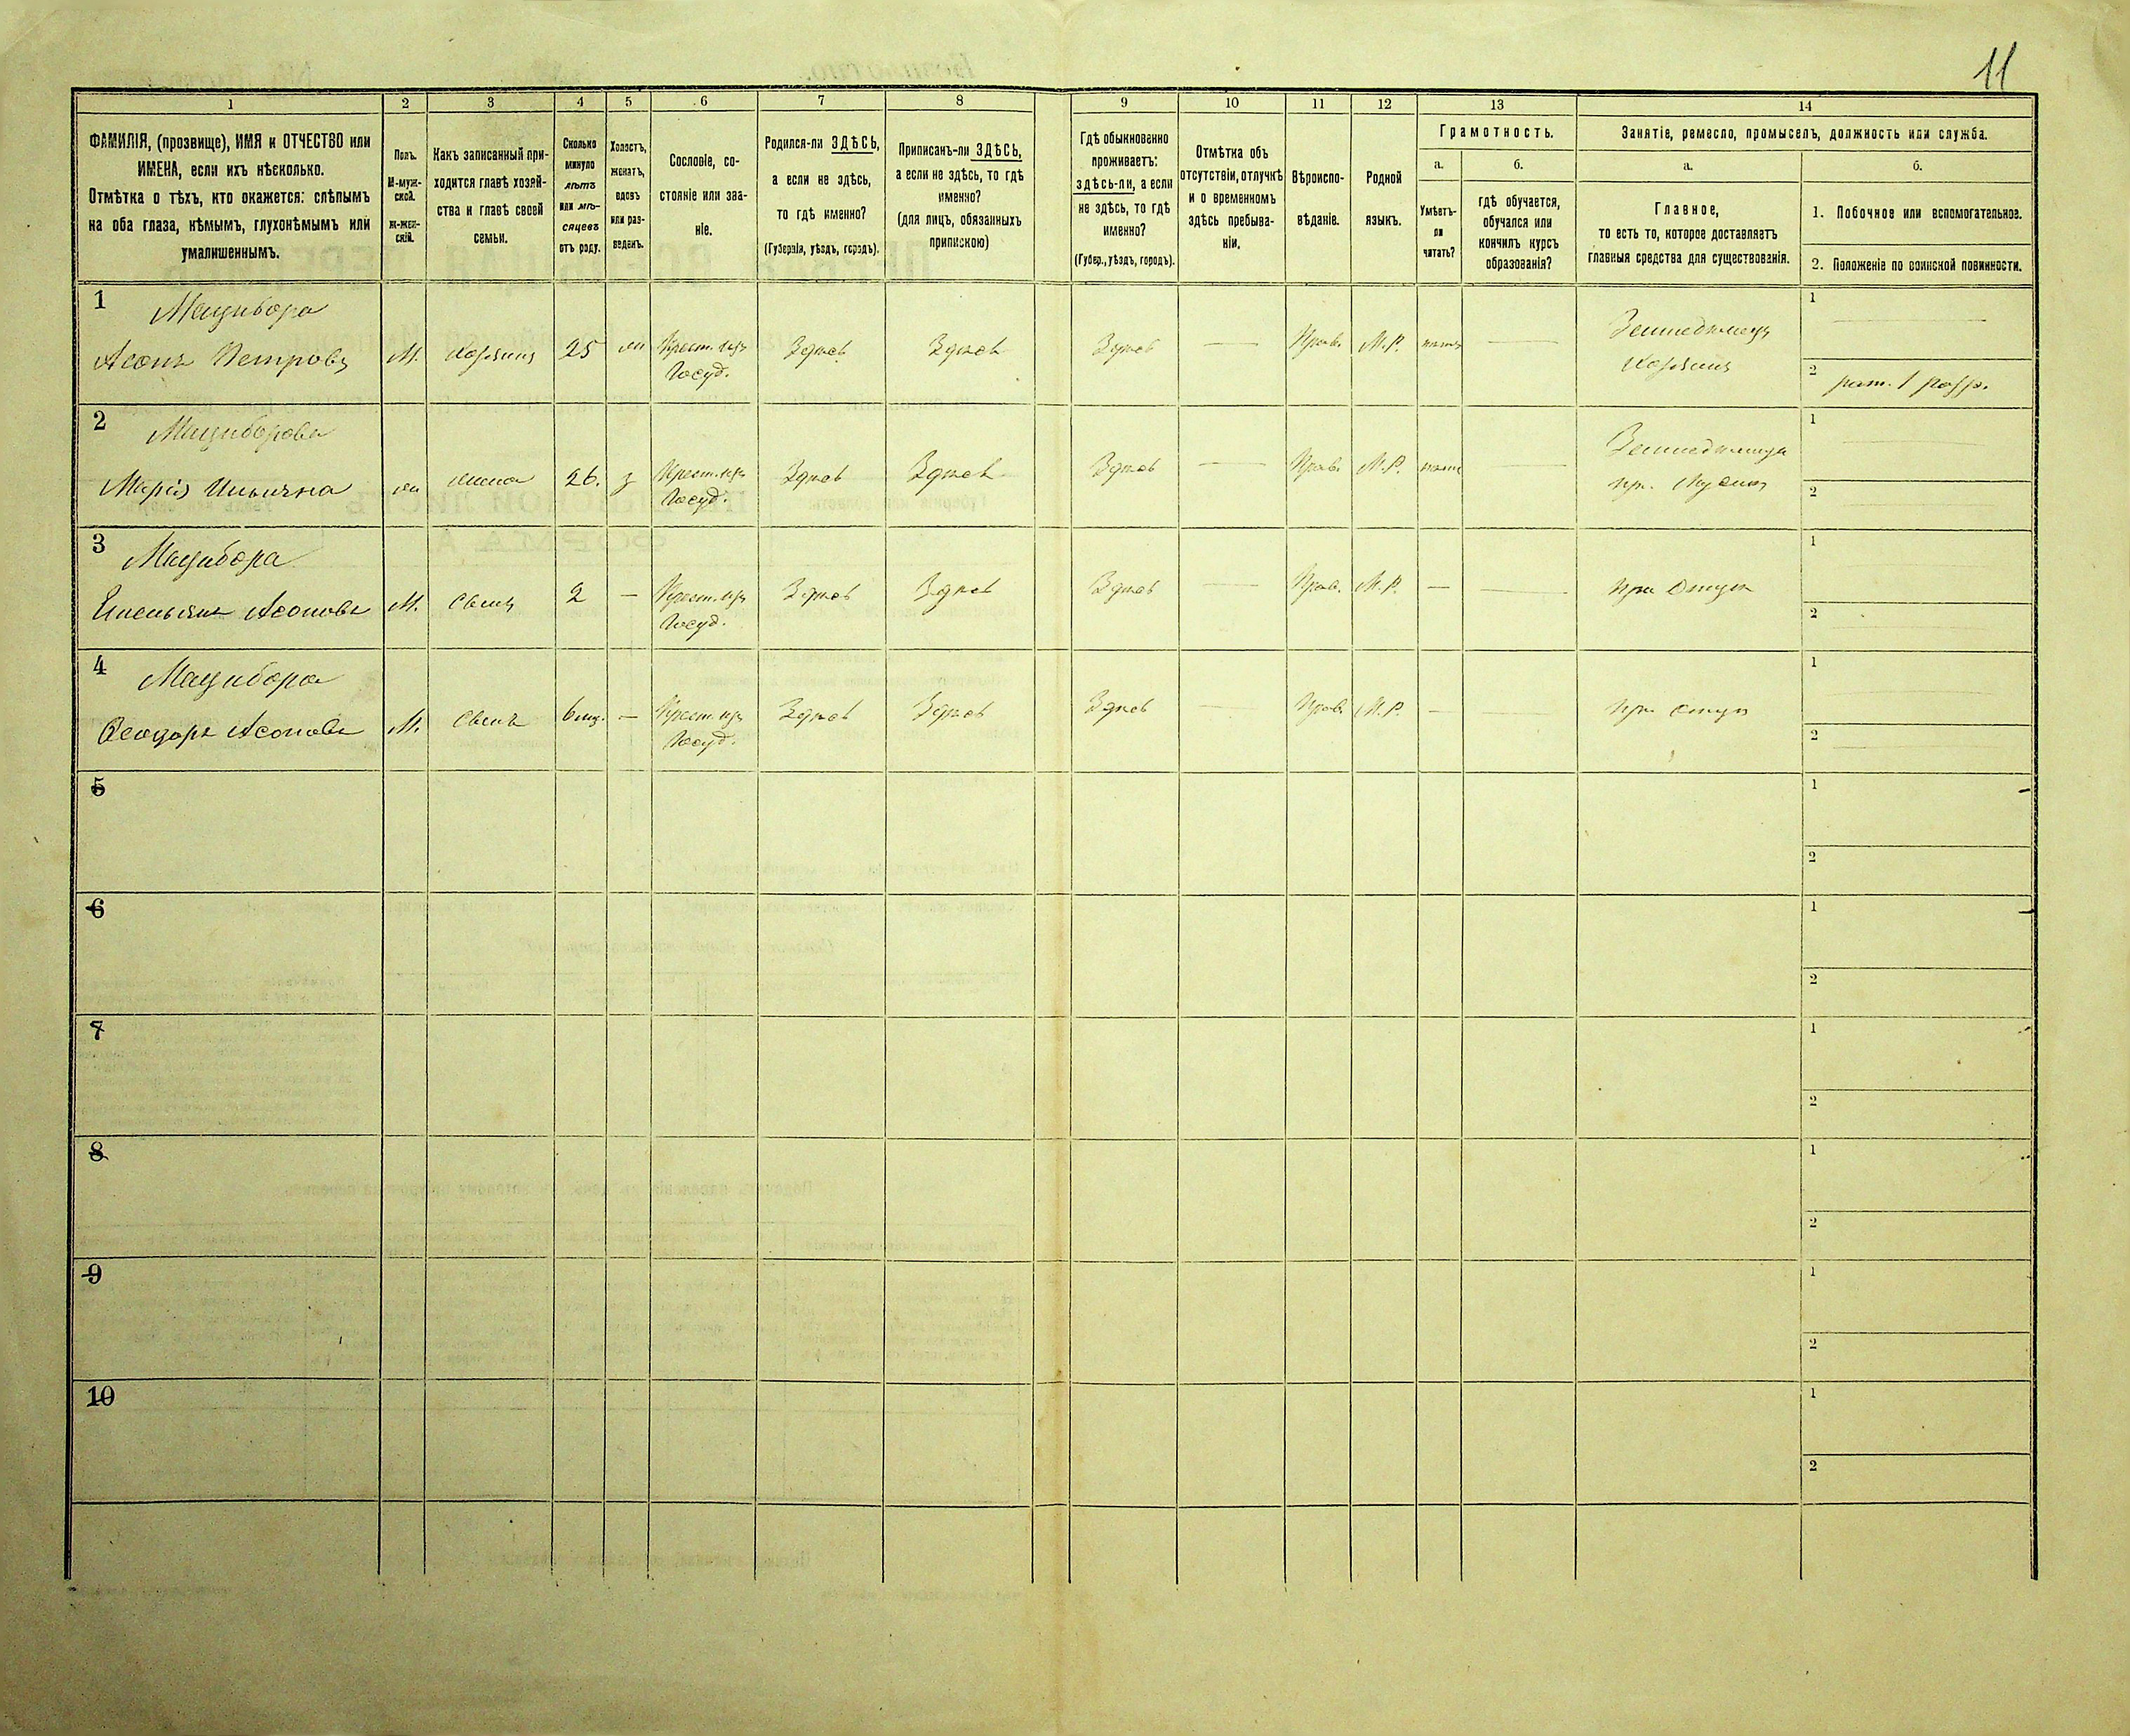 11
1 2 3 4 5 6 7 8 9 10 11 12 13 14
ФАМИЛІЯ, (прозвище), ИМЯ и ОТЧЕСТВО или
ИМЕНА, если ихъ нѣсколько.
Отмѣтка о тѣхъ, кто окажется: слѣпымъ
на оба глаза, нѣмымъ, глухонѣмымъ или
умалишеннымъ.
Полъ.
М-муж-
ской.
Ж-жен-
скій.
Какъ записанный при-
ходится главѣ хозяй-
ства и главѣ своей
семьи.
Сколько
минуло
лѣтъ
или мѣ-
сяцевъ
отъ роду.
Холостъ,
женатъ,
вдовъ
или раз-
веденъ.
Сословіе, со-
стояніе или зва-
ніе.
Родился-ли ЗДѢСЬ,
а если не здѣсь,
то гдѣ именно?
(Губернія, уѣздъ, городъ).
Приписанъ-ли ЗДѢСЬ,
а если не здѣсь, то гдѣ
именно?
(для лицъ, обязанныхъ
припискою)
Гдѣ обыкновенно
проживаетъ:
здѣсь-ли, а если
не здѣсь, то гдѣ
именно?
(Губер., уѣздъ, городъ).
Отмѣтка объ
отсутствіи, отлучкѣ
и о временномъ
здѣсь пребыва-
ніи.
Вѣроиспо-
вѣданіе.
Родной
языкъ.
Грамотность.
а.
Умѣетъ-
ли
читать?
б.
гдѣ обучается,
обучался или
кончилъ курсъ
образованія?
Занятіе, ремесло, промыселъ, должность или служба.
а.
Главное,
то есть то, которое доставляетъ
главныя средства для существованія.
б.
1. Побочное или вспомогательное.
2. Положеніе по воинской повинности.
1 Мацибора
Асонъ Петровъ М. хозяинъ 25 ж Крест. изъ Здѣсь Здѣсь Здѣсь — Прав. М.Р. нѣтъ — Земледѣлецъ 1 —
Госуд. хозяинъ 2 рат. 1 разр.
2 Мациборова
Марія Ильична ж жена 26. з Крест. изъ Здѣсь Здѣсь Здѣсь — Прав. М.Р. нѣтъ — 1 —
Госуд. 2 —
3 Мацибора
Емельянъ Асоновъ М. Сынъ 2 — Крест. изъ Здѣсь Здѣсь Здѣсь — Прав. М.Р. — — при Отцѣ 1
Госуд. 2 —
4 Мацибора
Ѳеодоръ Асоновъ М. Сынъ 6 мц. — Крест. изъ Здѣсь Здѣсь Здѣсь — Прав. М.Р. — — при отцѣ 1 —
Госуд. 2 —
5 1
2
6 1
2
7 1
2
8 1
2
9 1
2
10 1
2